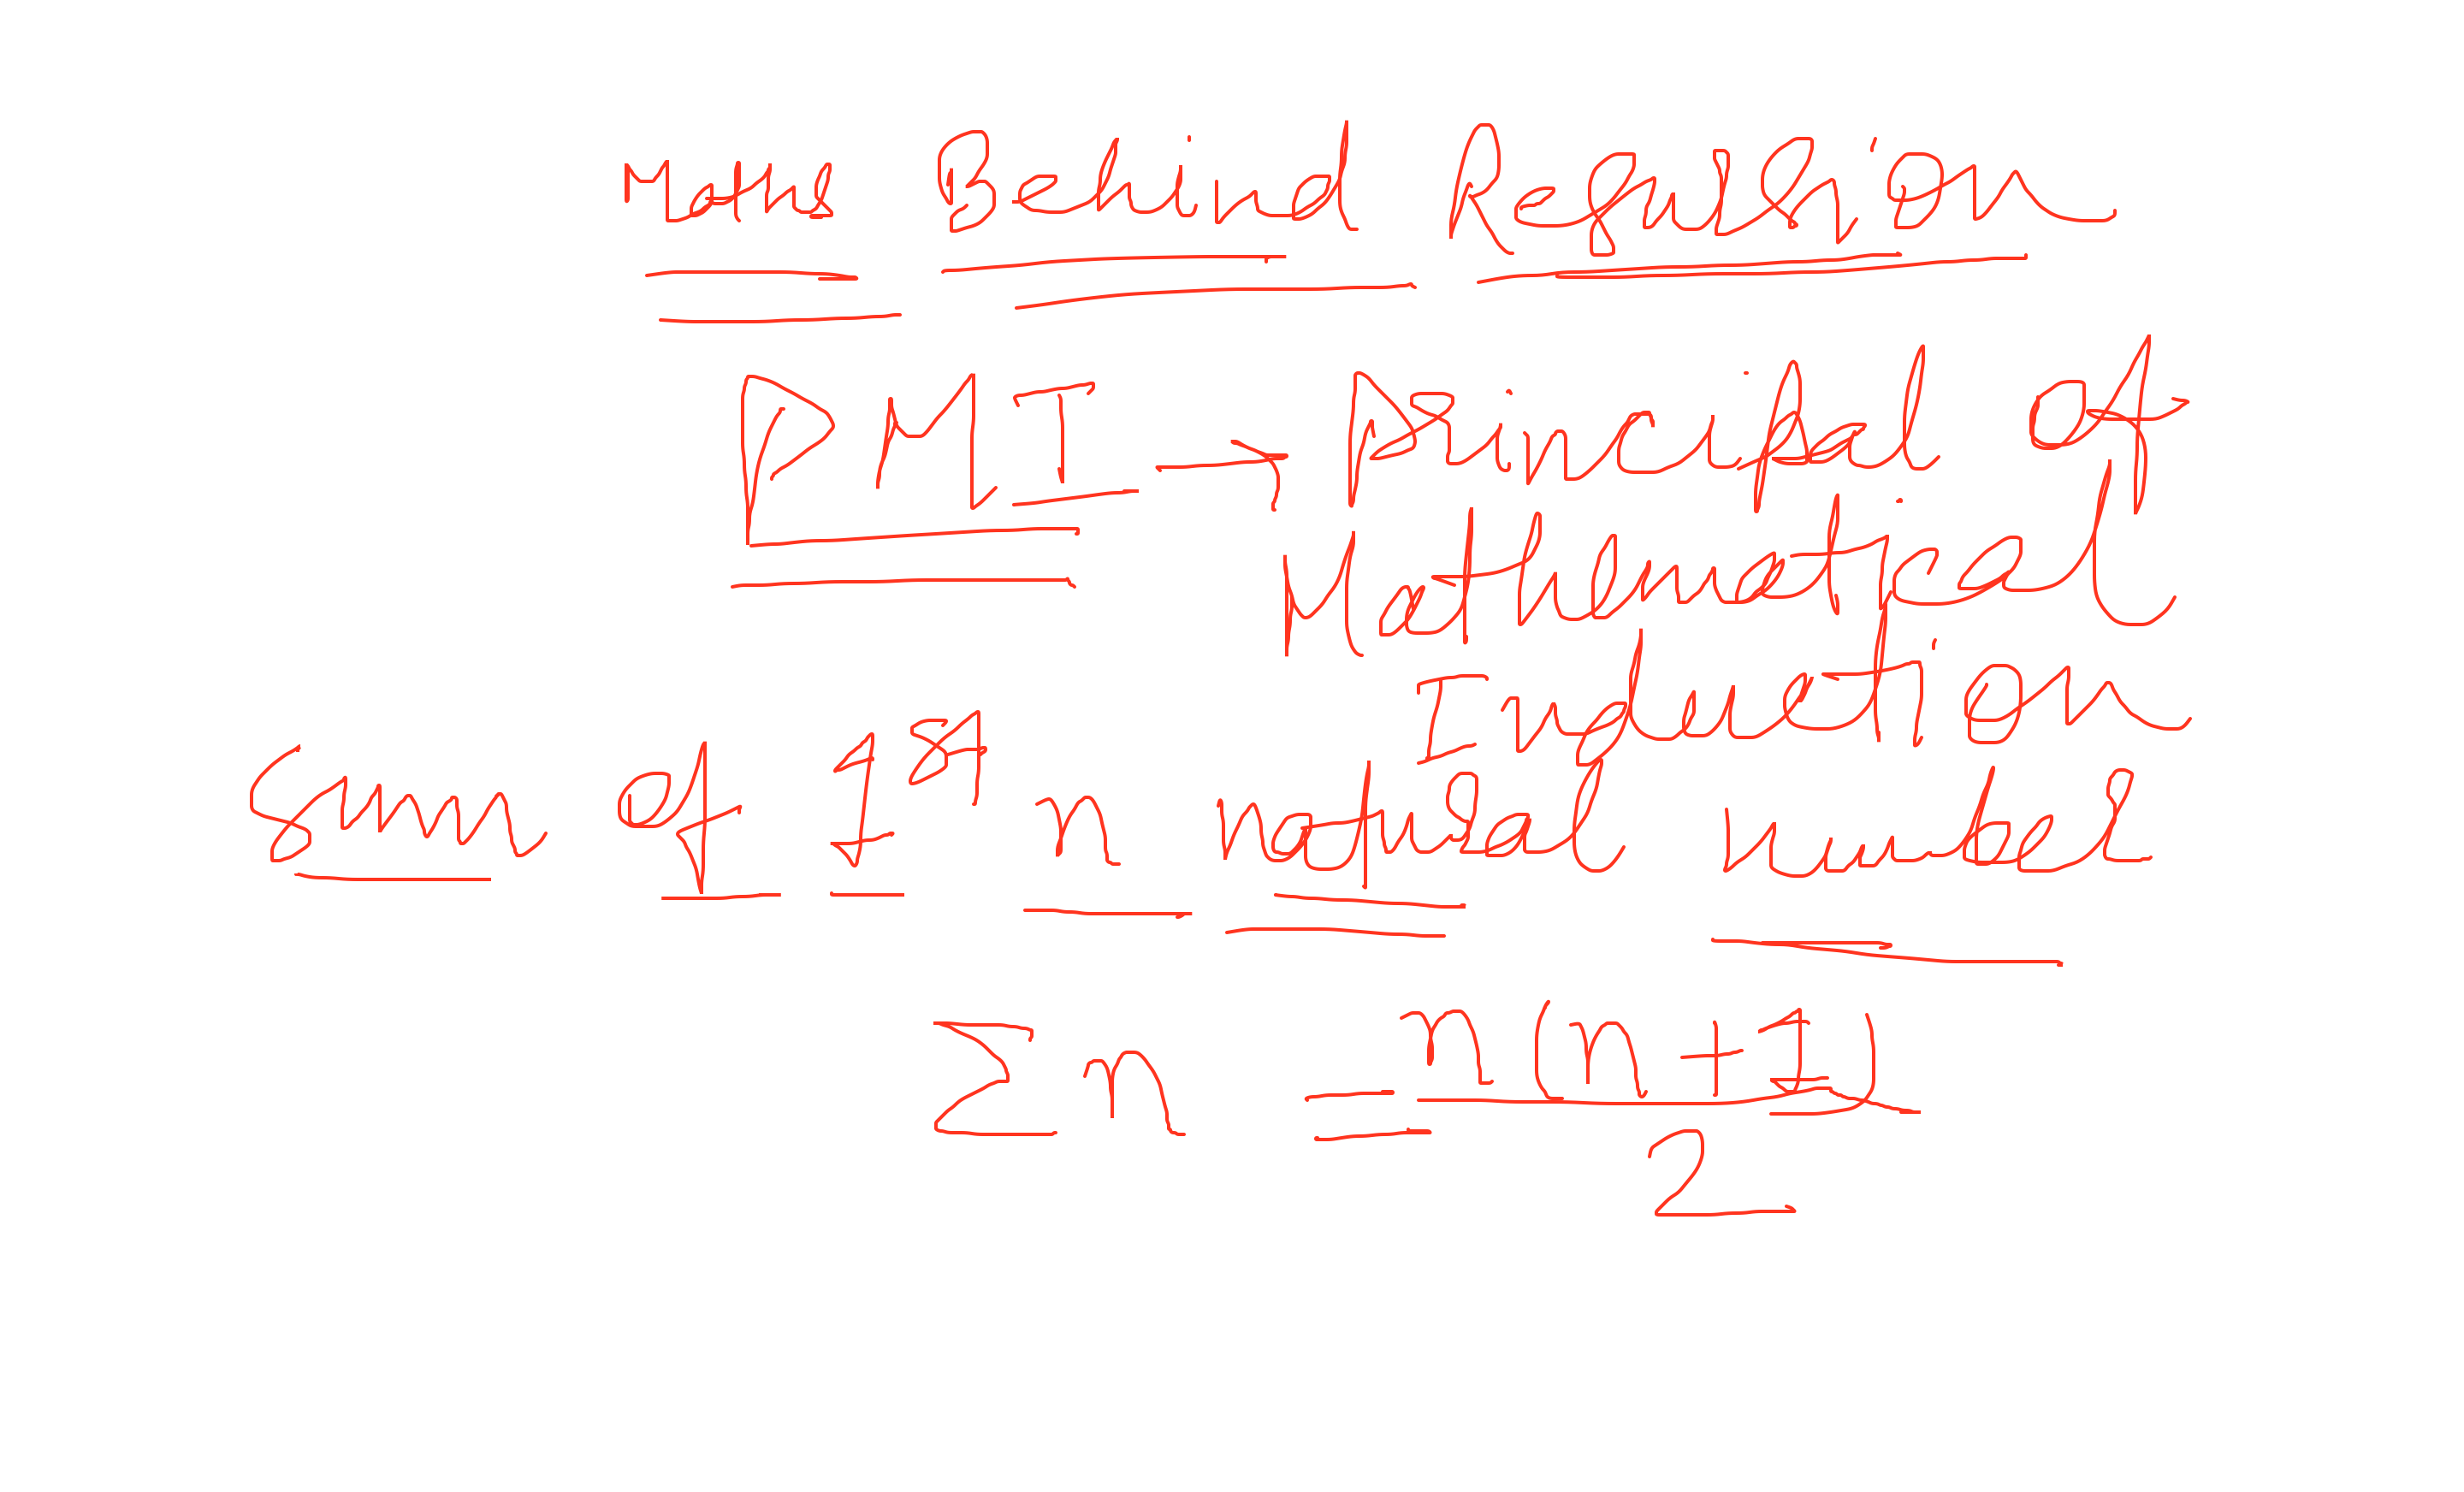 Maths Behind Recursion
PMI → Principal of
Mathematical
Induction
Sum of 1st n natural numbers
Σn = n(n+1)
2